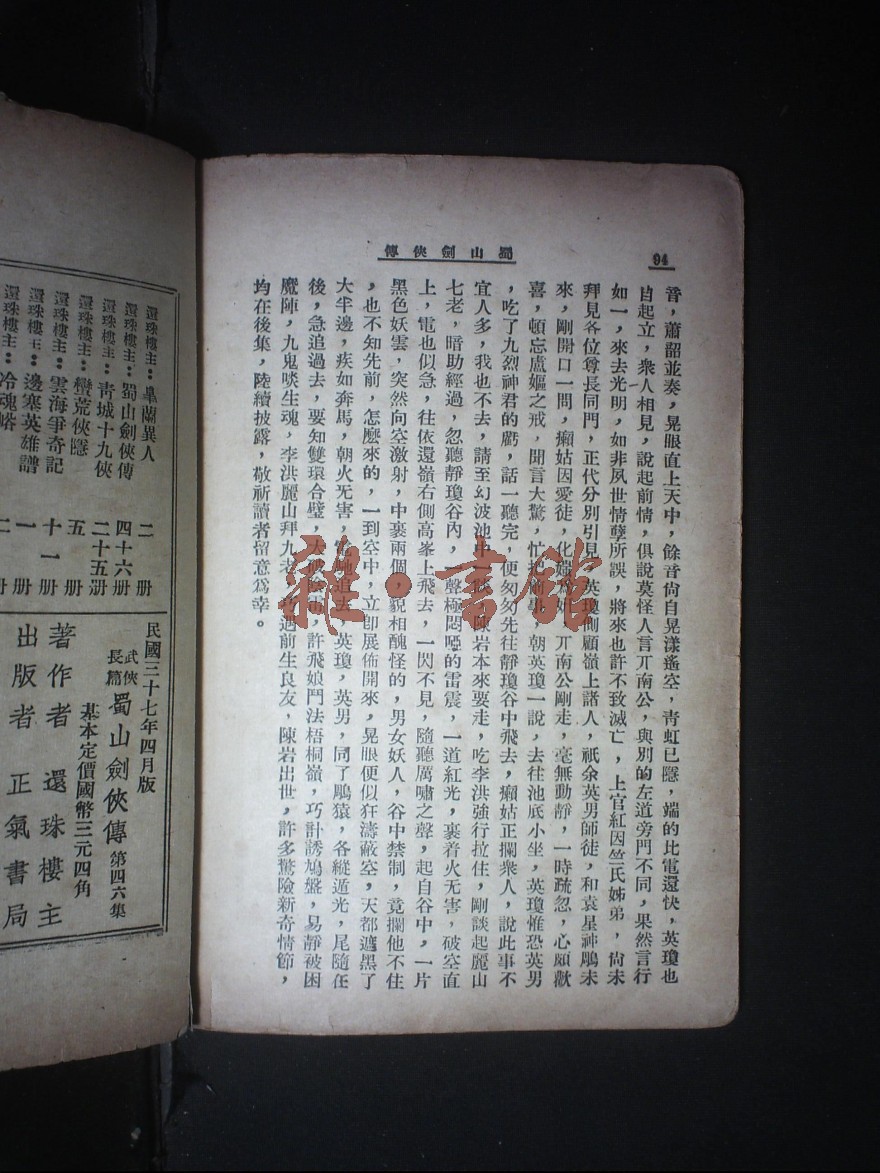 94
蜀山劍俠傳
音，蕭韶並奏，晃眼直上天中，餘音尚自晃漾遙空，青虹已隱，端的比電還快，英瓊也
自起立，衆人相見，說起前情，俱說莫怪人言丌南公，與別的左道旁門不同，果然言行
如一，來去光明，如非夙世情孽所誤，將來也許不致滅亡，上官紅因竺氏姊弟，尚未
拜見各位尊長同門，正代分別引見，英瓊側顧嶺上諸人，祇余英男師徒，和袁星神鵰未
來，剛開口一問，癩姑因愛徒，化 爲 ，丌南公剛走，毫無動靜，一時疏忽，心頗歡
喜，頓忘盧嫗之戒，聞言大驚，忙把前事，朝英瓊一說，去往池底小坐，英瓊惟恐英男
，吃了九烈神君的虧，話一聽完，便匆匆先往靜瓊谷中飛去，癩姑正攔衆人，說此事不
宜人多，我也不去，請至幻波池中一 ，陳岩本來要走，吃李洪強行拉住，剛談起麗山
七老，暗助經過，忽聽靜瓊谷內，一聲極悶啞的雷震，一道紅光，裹着火无害，破空直
上，電也似急，往依還嶺右側高峯上飛去，一閃不見，隨聽厲嘯之聲，起自谷中，一片
黑色妖雲，突然向空激射，中裹兩個，貌相醜怪的，男女妖人，谷中禁制，竟攔他不住
，也不知先前，怎麼來的，一到空中，立卽展佈開來，晃眼便似狂濤蔽空，天都遮黑了
大半邊，疾如奔馬，朝火无害，電馳追去，英瓊，英男，同了鵰猿，各縱遁光，尾隨在
後，急追過去，要知雙環合璧，大破 ，許飛娘鬥法梧桐嶺，巧計誘鳩盤，易靜被困
魔陣，九鬼啖生魂，李洪麗山拜九老， 遇前生良友，陳岩出世，許多驚險新奇情節，
均在後集，陸續披露，敬祈讀者留意爲幸。
民國三十七年四月版
武俠長篇 蜀山劍俠傳 第四六集
基本定價國幣三元四角
著作者 還珠樓主
出版者 正氣書局
還珠樓主：皋蘭異人 二册
還珠樓主：蜀山劍俠傳 四十六册
還珠樓主：青城十九俠 二十五册
還珠樓主：蠻荒俠隱 五册
還珠樓主：雲海爭奇記 十一册
還珠樓主：邊塞英雄譜 一册
還珠樓主：冷魂峪 二册
雜·書館